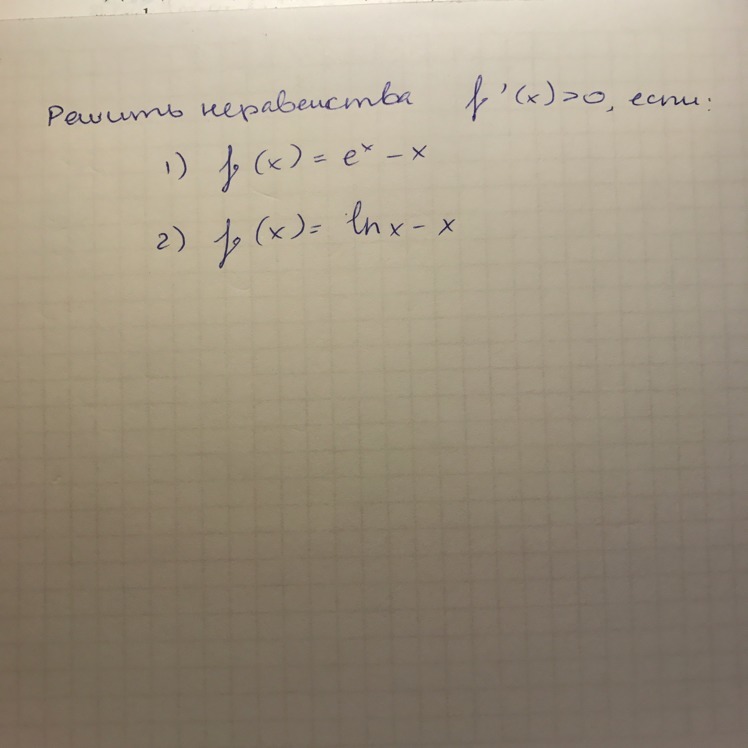 Решить неравенства f'(x)>0, если:
1) f(x) = eˣ - x
2) f(x) = ln x - x